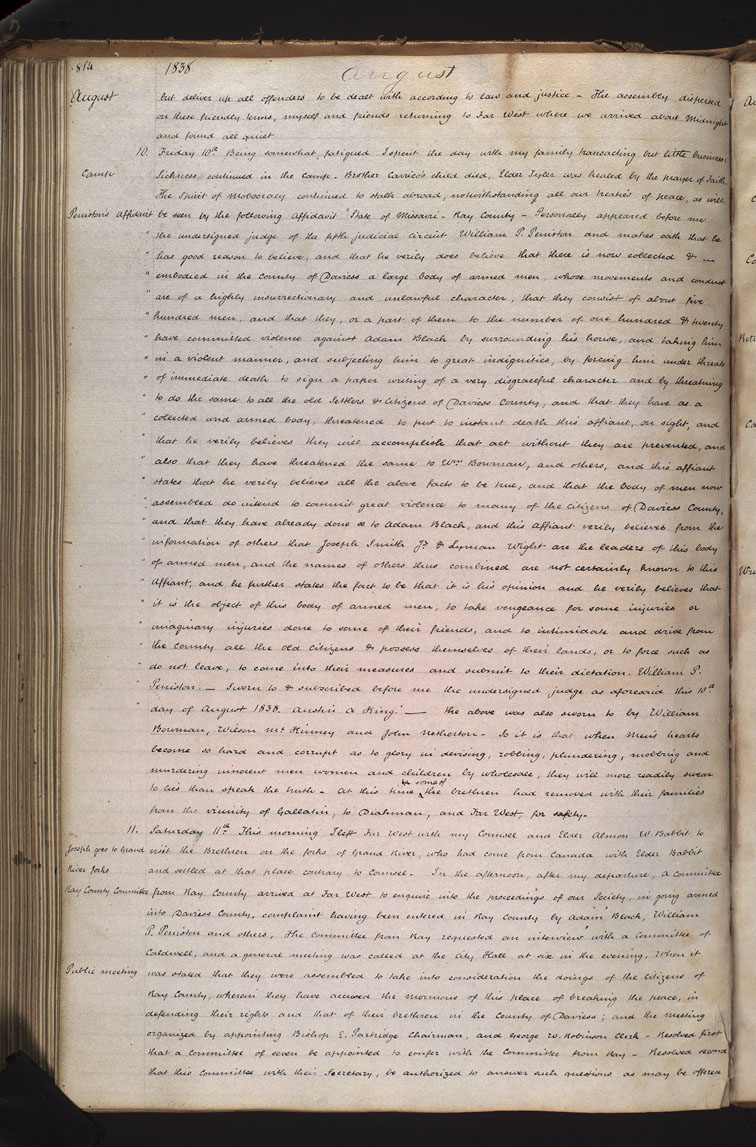 814 1838 August
August but deliver up all offenders to be dealt with according to law and justice – The assembly dispersed
on these friendly terms, myself and friends returning to Far West where we arrived about Midnight
and found all quiet
10. Friday 10th Being somewhat fatigued I spent the day with my family transacting but little business.
Camp Sickness continued in the camp. Brother Carrico's child died, Elder Tyler was healed by the prayer of faith.
The Spirit of mobocracy continued to stalk abroad, notwithstanding all our treaties of peace, as will
Peniston's affidavit be seen by the following affidavit "State of Missouri. Ray County – Personally appeared before me
" the undersigned judge of the fifth judicial circuit William P. Peniston and makes oath that he
" has good reason to believe, and that he verily does believe that there is now collected & —
" embodied in the County of Daviess a large body of armed men, whose movements and conduct
" are of a highly insurrectionary and unlawful character, that they consist of about five
" hundred men, and that they, or a part of them to the number of one hundred & twenty
" have committed violence against Adam Black by surrounding his house, and taking him
" in a violent manner, and subjecting him to great indignities, by forcing him under threats
" of immediate death to sign a paper writing of a very disgraceful character and by threatning
" to do the same to all the old Settlers & Citizens of Daviess County, and that they have as a
" collected and armed body, threatened to put to instant death this affiant, on sight, and
" that he verily believes they will accomplish that act without they are prevented, and
" also that they have threatened the same to Wm Bowman, and others, and this affiant
" states that he verily believes all the above facts to be true, and that the body of men now
" assembled do intend to commit great violence to many of the citizens of Daviess County,
" and that they have already done so to Adam Black, and this Affiant verily believes from the
" information of others that Joseph Smith Jr. & Lyman Wight are the leaders of this body
" of armed men, and the names of others thus combined are not certainly known to this
" Affiant, and he further states the fact to be that it is his opinion and he verily believes that
" it is the object of this body of armed men, to take vengeance for some injuries or
" imaginary injuries done to some of their friends, and to intimidate and drive from
" the county all the old Citizens & possess themselves of their lands, or to force such as
" do not leave, to come into their measures and submit to their dictation. William P.
" Peniston. — Sworn to & subscribed before me the undersigned judge as aforesaid this 10th
" day of August 1838. Austin A King." — the above was also sworn to by William
Bowman, Wilson Mc Kinney and John Netherton. So it is that when Men's hearts
become so hard and corrupt as to glory in devising, robbing, plundering, mobbing and
murdering innocent men women and children by wholesale, they will more readily swear
to lies than speak the truth – At this time some of the brethren had removed with their families
from the vicinity of Gallatin, to Diahman, and Far West, for safety.
11. Saturday 11th This morning I left Far West with my Counsel and Elder Almon W. Babbit to
Joseph goes to Grand visit the Brethren on the forks of Grand River, who had come from Canada with Elder Babbit
River forks and settled at that place contrary to Counsel. In the afternoon, after my departure, a Committee
Ray County Committee from Ray County arrived at Far West to enquire into the proceedings of our Society, in going armed
into Daviess County, complaint having been entered in Ray County by Adam Black, William
P. Peniston and others, The committee from Ray requested an interview with a Committee of
Caldwell, and a general meeting was called at the City Hall at six in the evening, when it
Public meeting was stated that they were assembled to take into consideration the doings of the citizens of
Ray County, wherein they have accused the mormons of this place of breaking the peace, in
defending their rights and that of their brethren in the County of Daviess; and the meeting
organized by appointing Bishop E. Partridge Chairman, and George W. Robinson Clerk – Resolved first
that a committee of seven be appointed to confer with the Committee from Ray – Resolved second
that this Committee with their Secretary, be authorized to answer such questions as may be offered